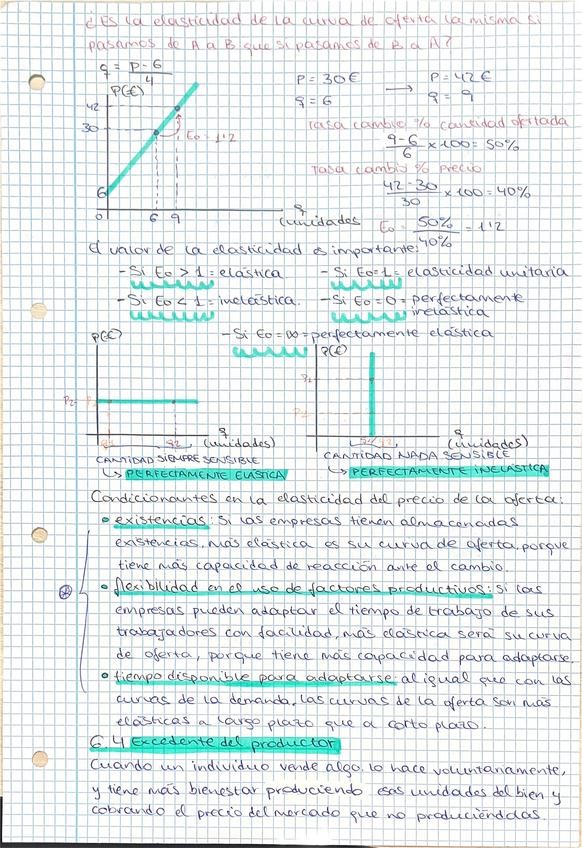 ¿Es la elasticidad de la curva de oferta la misma si
pasamos de A a B que si pasamos de B a A?
q = P-6 / 4
P(€)
42
30
6
0
6 9
q
(unidades)
Eo = 1'2
P = 30€ → P = 42€
q = 6 q = 9
Tasa cambio % cantidad ofertada
9-6 / 6 × 100 = 50%
Tasa cambio % precio
42-30 / 30 × 100 = 40%
Eo = 50% / 40% = 1'2
el valor de la elasticidad es importante:
- Si Eo > 1 = elástica - Si Eo=1 = elasticidad unitaria
- Si Eo < 1 = inelástica. - Si Eo = 0 = perfectamente
inelástica
- Si Eo = ∞ = perfectamente elástica
P(€)
P2
q1 q2 (unidades)
CANTIDAD SIEMPRE SENSIBLE
↳ PERFECTAMENTE ELÁSTICA
P(€)
q
q1 q2 (unidades)
CANTIDAD NADA SENSIBLE
↳ PERFECTAMENTE INELÁSTICA
Condicionantes en la elasticidad del precio de la oferta:
• existencias: si las empresas tienen almacenadas
existencias, más elástica es su curva de oferta, porque
tiene más capacidad de reacción ante el cambio.
• flexibilidad en el uso de factores productivos: si las
empresas pueden adaptar el tiempo de trabajo de sus
trabajadores con facilidad, más elástica será su curva
de oferta, porque tiene más capacidad para adaptarse.
• tiempo disponible para adaptarse al igual que con las
curvas de la demanda, las curvas de la oferta son más
elásticas a largo plazo que a corto plazo.
6.4 Excedente del productor
Cuando un individuo vende algo, lo hace voluntariamente,
y tiene más bienestar produciendo esas unidades del bien y
cobrando el precio del mercado que no produciéndolas.